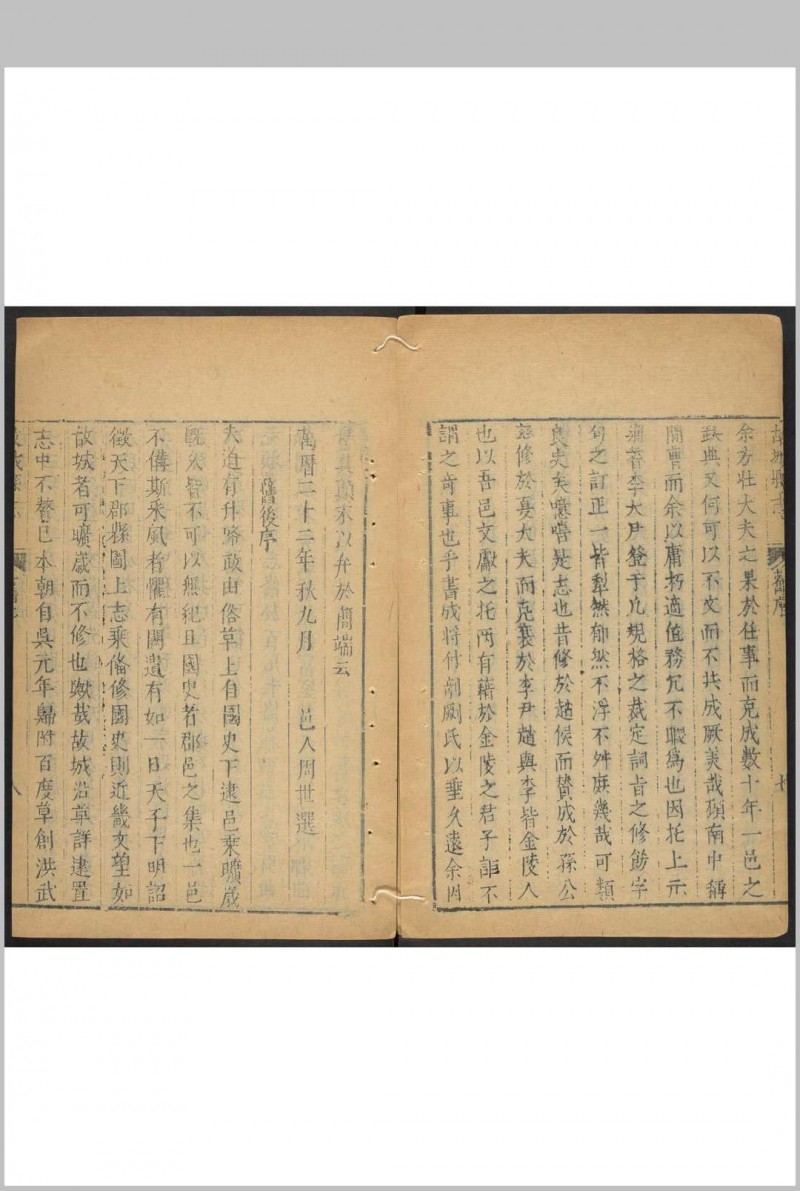 故城縣志 舊序 七
余方壯大夫之果於任事而克成數十年一邑之
缺典又何可以不文而不共成厥美哉顧南中稱
閒曹而余以庸朽適值務冗不暇為也因托上元
李大尹登于凡規格之裁定詞旨之修飭字
句之訂正一皆犁然郁然不浮不舛庶幾哉可類
良史矣嘻是志也昔修於趙侯而贊成於孫公
茲修於夏大夫而克襄於李尹趙與李皆金陵人
也以吾邑文獻之托两有藉於金陵之君子詎不
謂之奇事也乎書成將付剞劂氏以垂久遠余因
書其顛末以弁於簡端云
萬曆二十二年秋九月 邑人周世選
舊後序
夫迨有升降政由俗革上自國史下逮邑乘曠歲
既久皆不可以無紀且國史者郡邑之集也一邑
不備斯采風者懼有闕遺有如一日天子下明詔
徵天下郡縣圖上志乘俻修國史則近畿文望如
故城者可曠歲而不修也歟哉故城沿革詳建置
志中不贅已本朝自吳元年歸附百度草創洪武
故城縣志 舊序 八